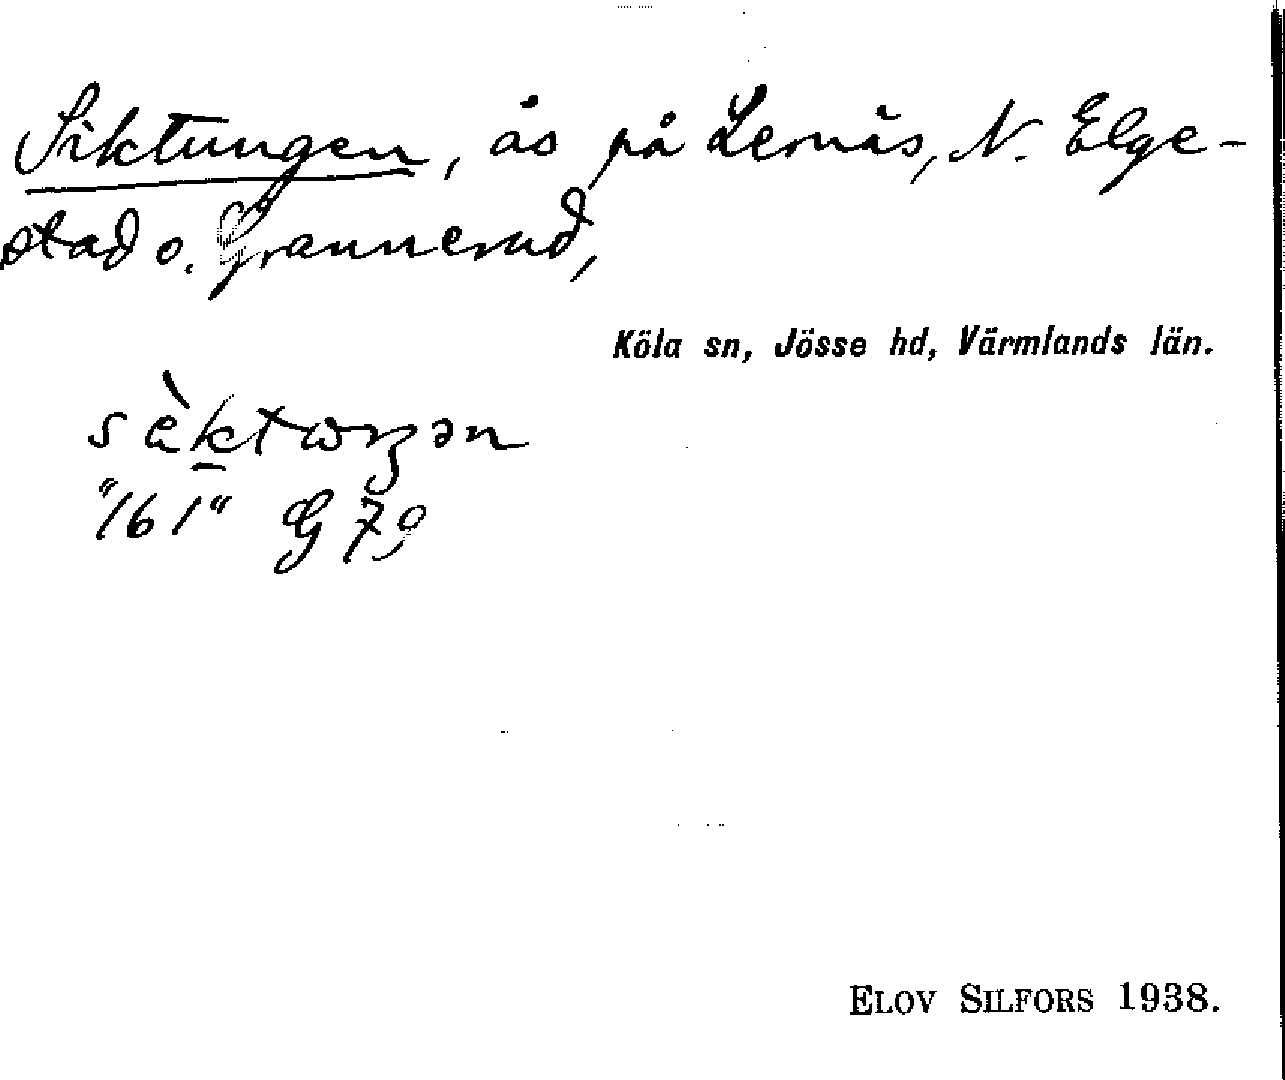 Siktungen, ås på Lernäs, N. Elge-
stad o. Grannerud,
Köla sn, Jösse hd, Värmlands län.
"161" G 79
ELOV SILFORS 1938.